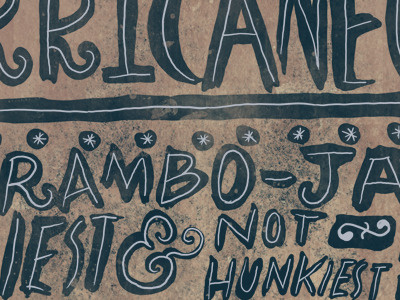 RRICANE
RAMBO-JA
IEST & NOT
HUNKIEST